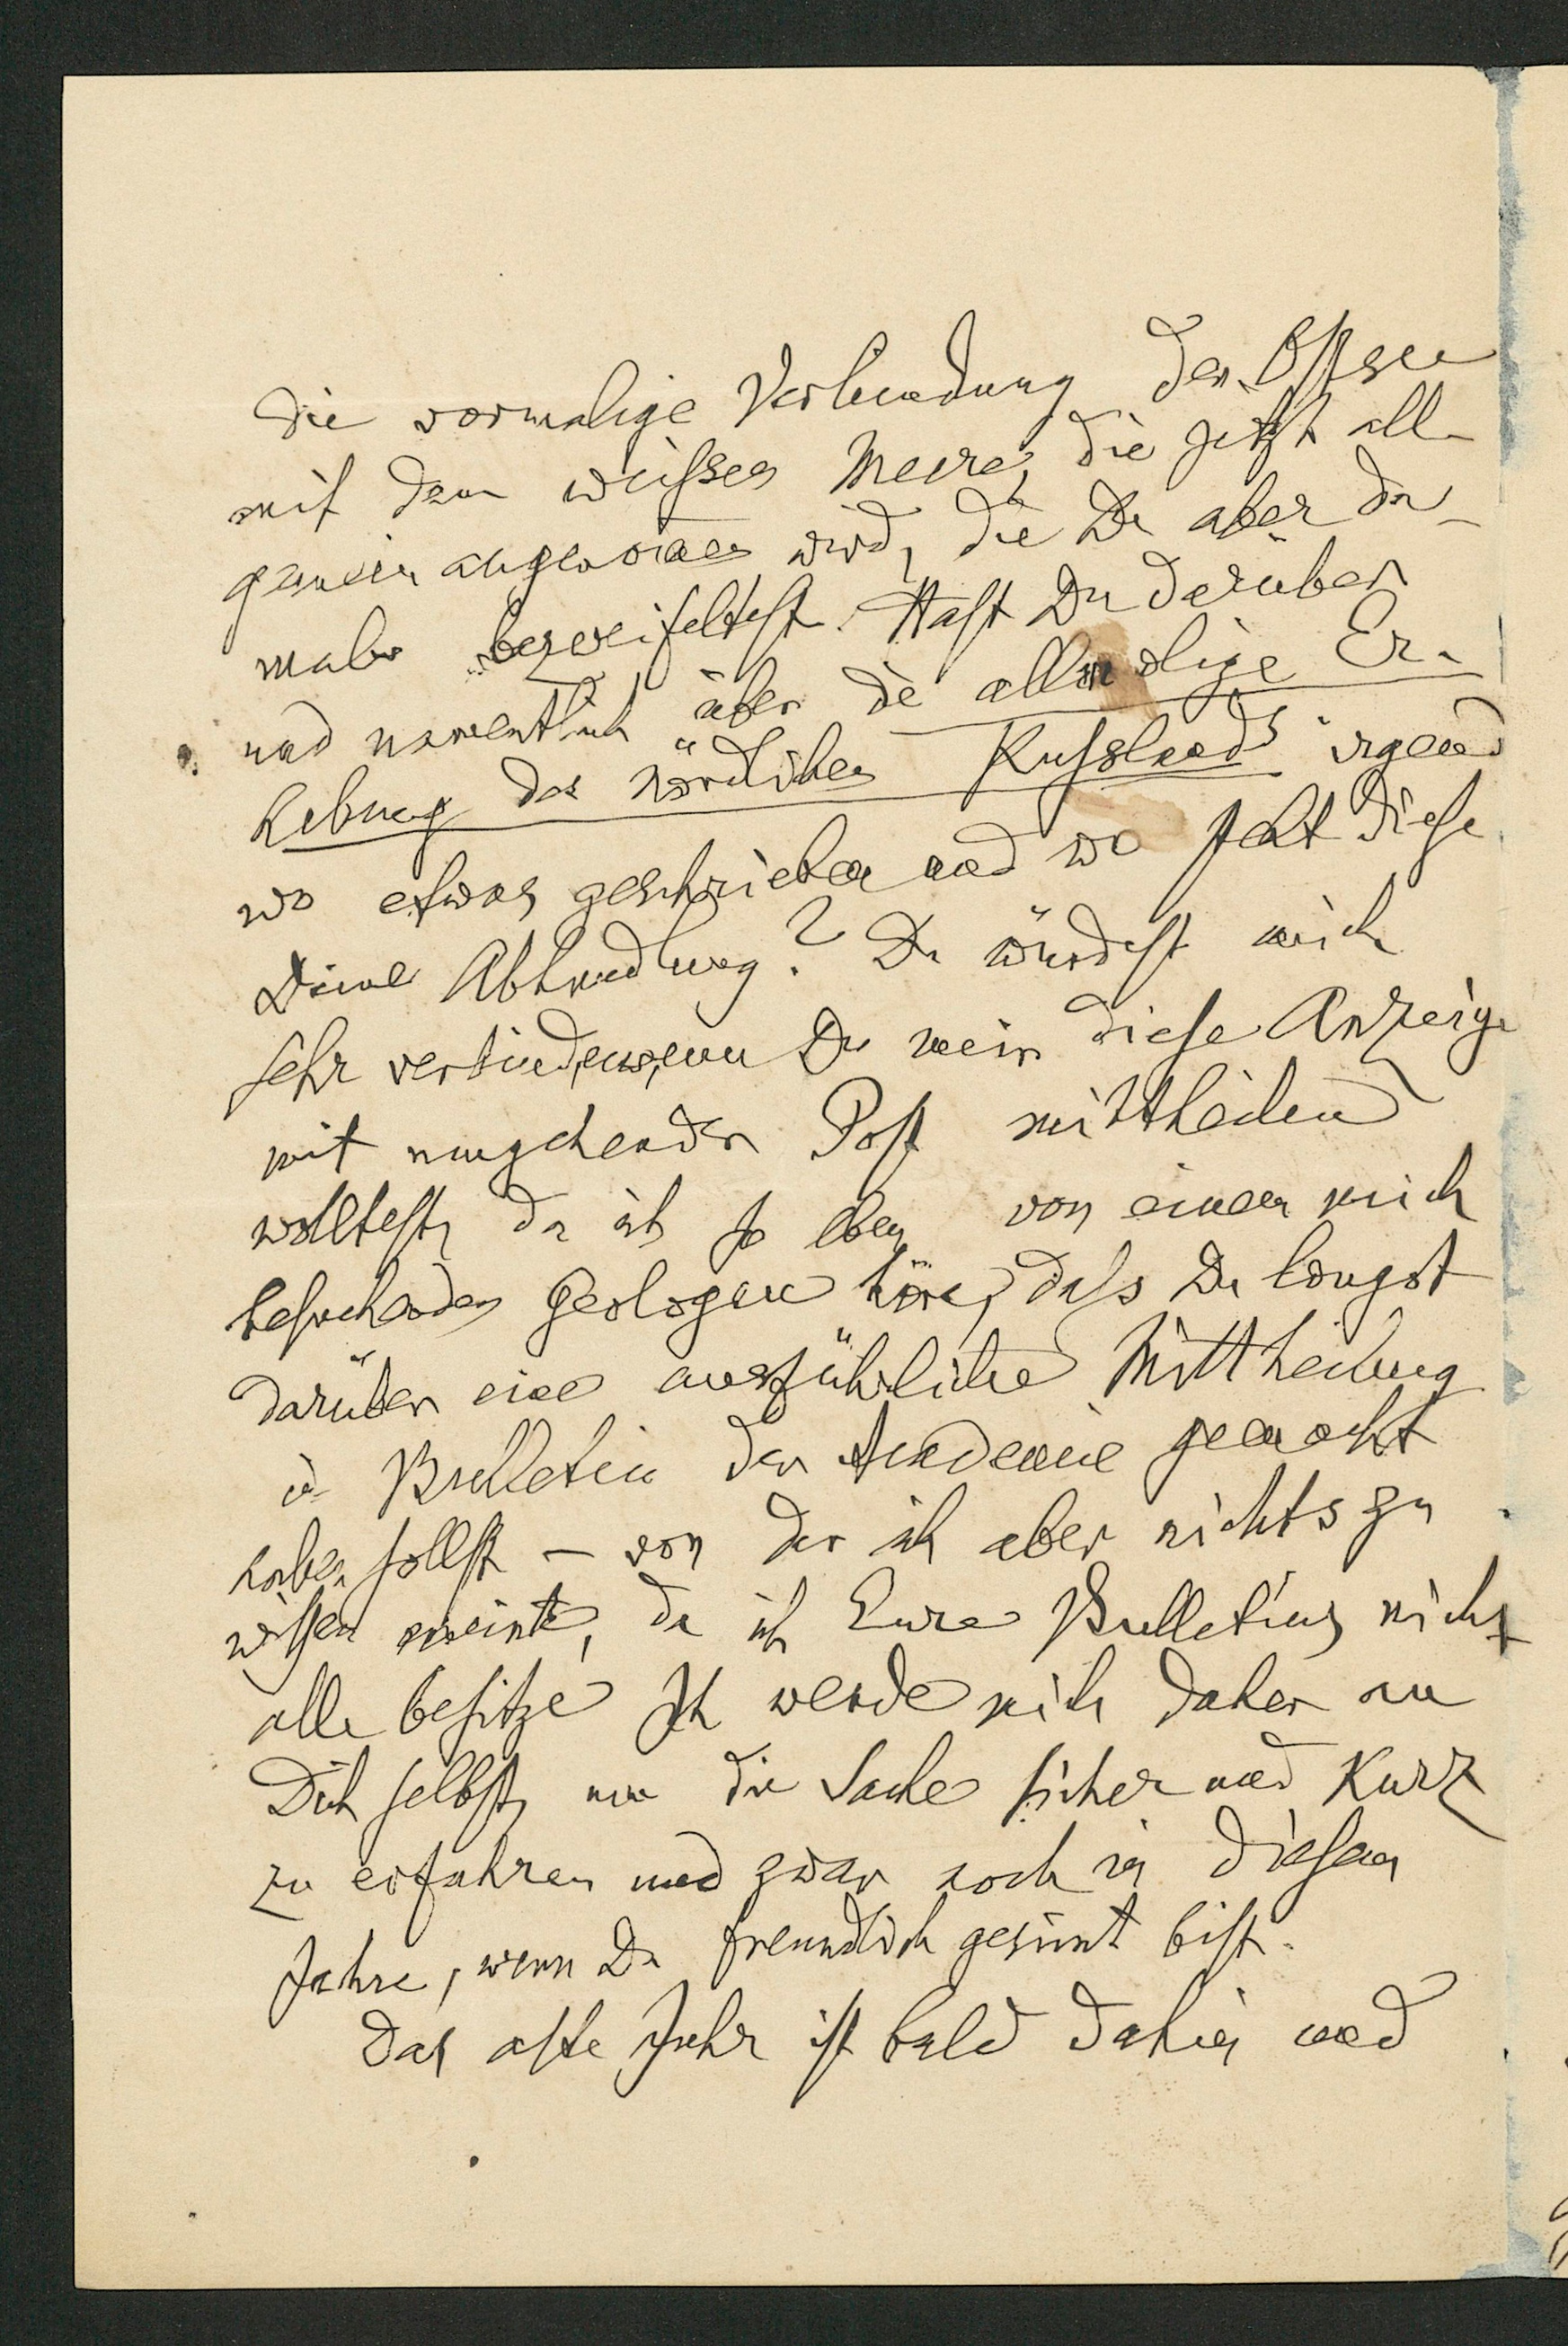 die vormalige Verbindung der Ostsee
mit dem weißen Meere, die jetzt all-
gemein angenommen wird, die Du aber da-
mals bezweifeltest. Hast Du darüber
und namentlich über die allmälige Er-
hebung des nördlichen Russlands irgend
wo etwas geschrieben und wo steht diese
Deine Abhandlung? Du würdest mich
sehr verbinden, wenn Du mir diese Anzeige
mit umgehender Post mittheilen
wolltest, da ich so eben von einem mich
besuchenden Geologen höre, dass Du längst
darüber eine ausführliche Mittheilung
im Bulletin der Academie gemacht
haben sollst – von der ich aber nichts zu
wissen meinte, da ich Eure Bulletins nicht
alle besitze. Ich wende mich daher an
Dich selbst, um die Sache sicher und kurz
zu erfahren und zwar noch in diesem
Jahre, wenn Du freundlich gesinnt bist.
Das alte Jahr ist bald dahin und